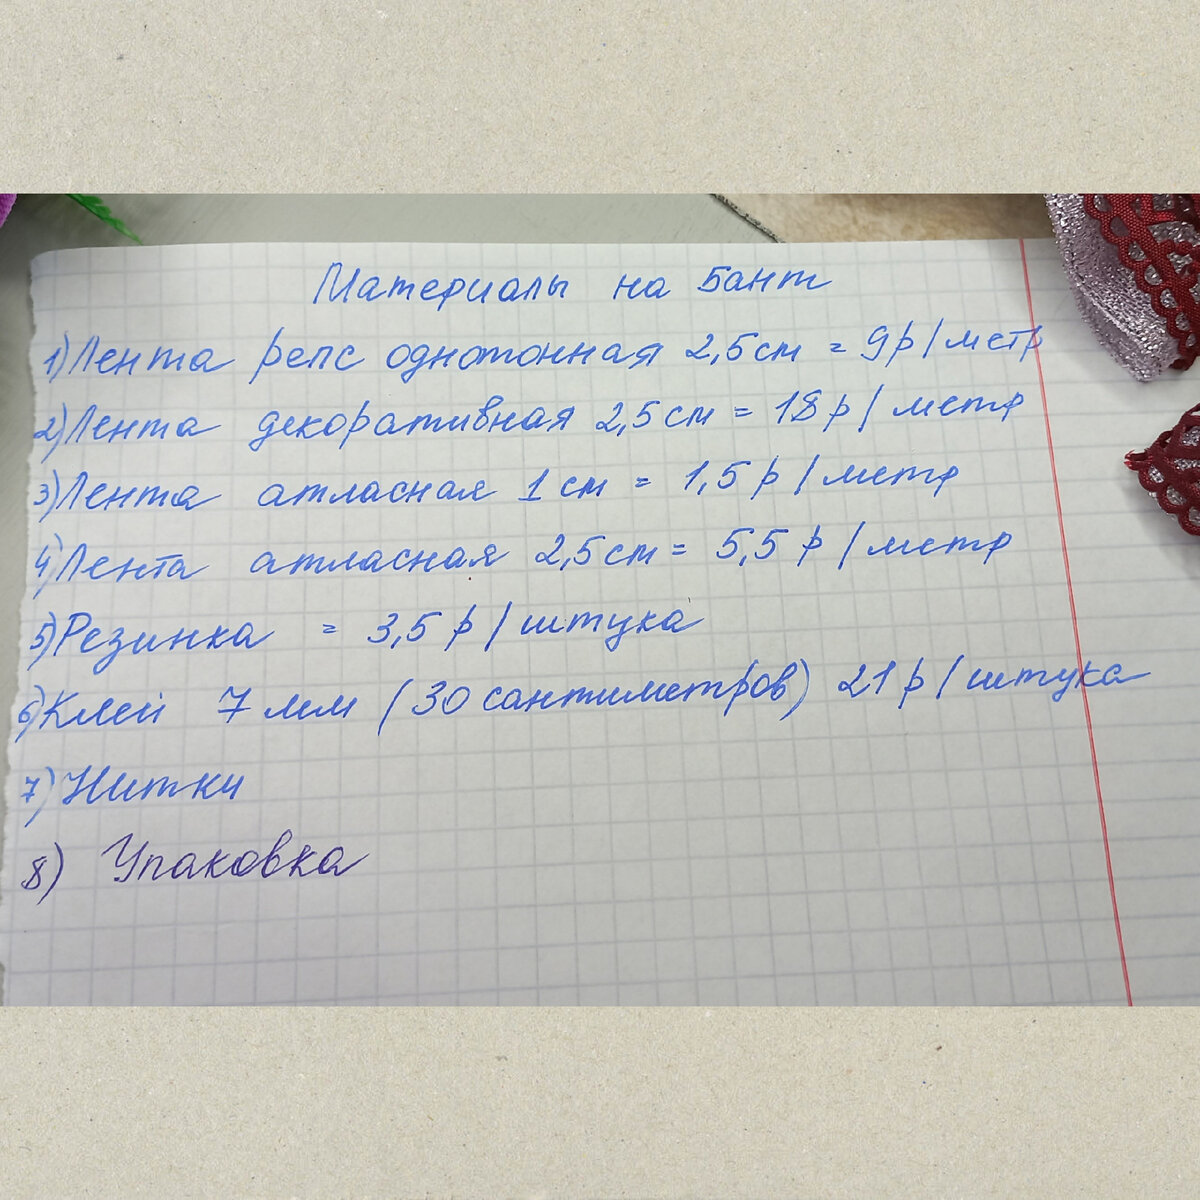 Материалы на бант
1) Лента репс однотонная 2,5 см = 9 р/метр
2) Лента декоративная 2,5 см = 18 р/метр
3) Лента атласная 1 см = 1,5 р/метр
4) Лента атласная 2,5 см = 5,5 р/метр
5) Резинка = 3,5 р/штука
6) Клей 7 мм (30 сантиметров) 21 р/штука
7) Нитки
8) Упаковка